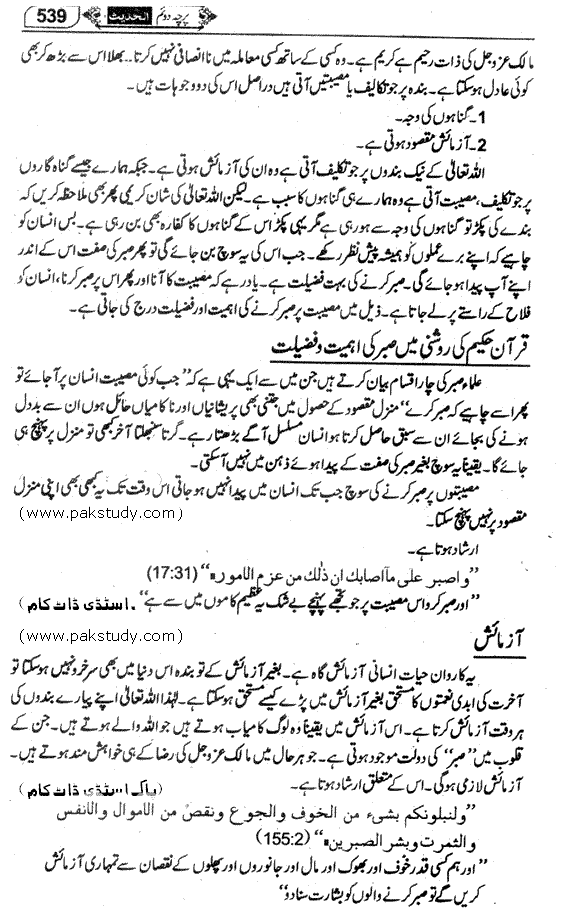 539 الحدیث پرچہ دوئم
مالک عزوجل کی ذات رحیم ہے کریم ہے۔ وہ کسی کے ساتھ کسی معاملہ میں ناانصافی نہیں کرتا۔ بھلا اس سے بڑھ کر بھی
کوئی عادل ہوسکتا ہے۔ بندہ پر جو تکالیف یا مصیبتیں آتی ہیں دراصل اس کی دو وجوہات ہیں۔
1۔ گناہوں کی وجہ۔
2۔ آزمائش مقصود ہوتی ہے۔
اللہ تعالیٰ کے نیک بندوں پر جو تکلیف آتی ہے وہ ان کی آزمائش ہوتی ہے۔ جبکہ ہمارے جیسے گناہ گاروں
پر جو تکلیف، مصیبت آتی ہے وہ ہمارے ہی گناہوں کا سبب ہے۔ لیکن اللہ تعالیٰ کی شان کریمی پھر بھی ملاحظہ کریں کہ
بندے کی پکڑ تو گناہوں کی وجہ سے ہورہی ہے مگر یہی پکڑ اس کے گناہوں کا کفارہ بھی بن رہی ہے۔ بس انسان کو
چاہیے کہ اپنے برے عملوں کو ہمیشہ پیش نظر رکھے۔ جب اس کی یہ سوچ بن جائے گی تو پھر صبر کی صفت اس کے اندر
اپنے آپ پیدا ہو جائے گی۔ صبر کرنے کی بہت فضیلت ہے۔ یاد رہے کہ مصیبت کا آنا اور پھر اس پر صبر کرنا، انسان کو
فلاح کے راستے پر لے جاتا ہے۔ ذیل میں مصیبت پر صبر کرنے کی اہمیت اور فضیلت درج کی جاتی ہے۔
قرآن حکیم کی روشنی میں صبر کی اہمیت و فضیلت
علماء صبر کی چار اقسام بیان کرتے ہیں جن میں سے ایک یہی ہے کہ ”جب کوئی مصیبت انسان پر آجائے تو
پھر اسے چاہیے کہ صبر کرے“ منزل مقصود کے حصول میں جتنی بھی پریشانیاں اور ناکامیاں حائل ہوں ان سے بددل
ہونے کی بجائے ان سے سبق حاصل کرتا ہوا انسان مسلسل آگے بڑھتا رہے۔ گرتا سنبھلتا آخر کبھی تو منزل پر پہنچ ہی
جائے گا۔ یقیناً یہ سوچ بغیر صبر کی صفت کے پیدا ہوئے ذہن میں نہیں آسکتی۔
مصیبتوں پر صبر کرنے کی سوچ جب تک انسان میں پیدا نہیں ہو جاتی اس وقت تک یہ کبھی بھی اپنی منزل
مقصود پر نہیں پہنچ سکتا۔ (www.pakstudy.com)
ارشاد ہوتا ہے۔
”واصبر علی مآاصابک ان ذٰلک من عزم الامور۔“ (17:31)
”اور صبر کرو اس مصیبت پر جو تجھے پہنچے بے شک یہ عظیم کاموں میں سے ہے“ اسٹڈی ڈاٹ کام)
آزمائش (www.pakstudy.com)
یہ کاروان حیات انسانی آزمائش گاہ ہے۔ بغیر آزمائش کے تو بندہ اس دنیا میں بھی سرخرو نہیں ہوسکتا تو
آخرت کی ابدی نعمتوں کا مستحق بغیر آزمائش میں پڑے کیسے مستحق ہوسکتا ہے۔ لہٰذا اللہ تعالیٰ اپنے پیارے بندوں کی
ہر وقت آزمائش کرتا ہے۔ اس آزمائش میں یقیناً وہ لوگ کامیاب ہوتے ہیں جو اللہ والے ہوتے ہیں۔ جن کے
قلوب میں ”صبر“ کی دولت موجود ہوتی ہے۔ جو ہر حال میں مالک عزوجل کی رضا کے ہی خواہش مند ہوتے ہیں۔
آزمائش لازمی ہوگی۔ اس کے متعلق ارشاد ہوتا ہے۔ (پاک اسٹڈی ڈاٹ کام)
”ولنبلونکم بشیء من الخوف والجوع ونقص من الاموال والانفس
والثمرت وبشر الصبرین۔“ (155:2)
”اور ہم کسی قدر خوف اور بھوک اور مال اور جانوروں اور پھلوں کے نقصان سے تمہاری آزمائش
کریں گے تو صبر کرنے والوں کو بشارت سنا دو“